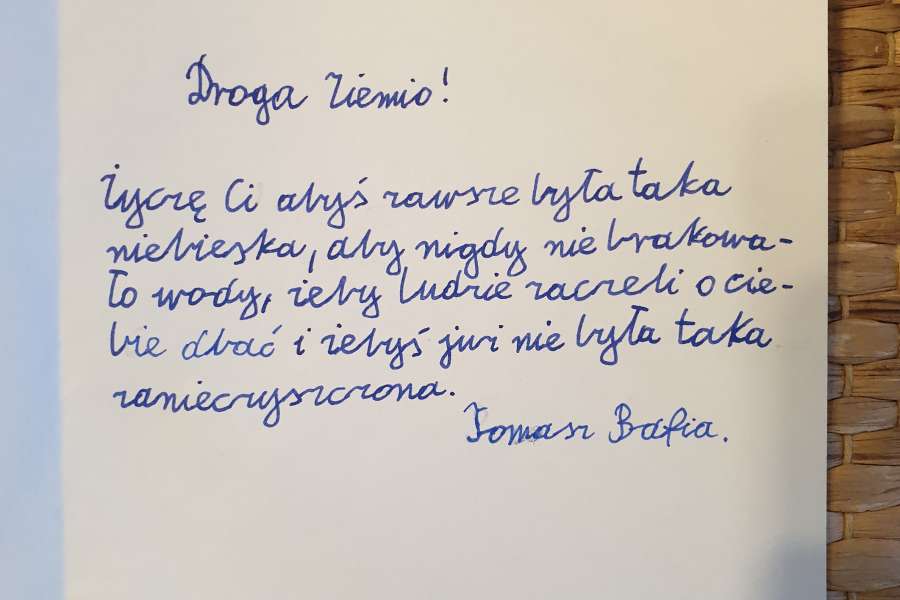 Droga Ziemio!
Życzę Ci abyś zawsze była taka
niebieska, aby nigdy nie brakowa-
ło wody, żeby ludzie zaczeli o cie-
bie dbać i żebyś już nie była taka
zanieczyszczona.
Tomasz Bafia.